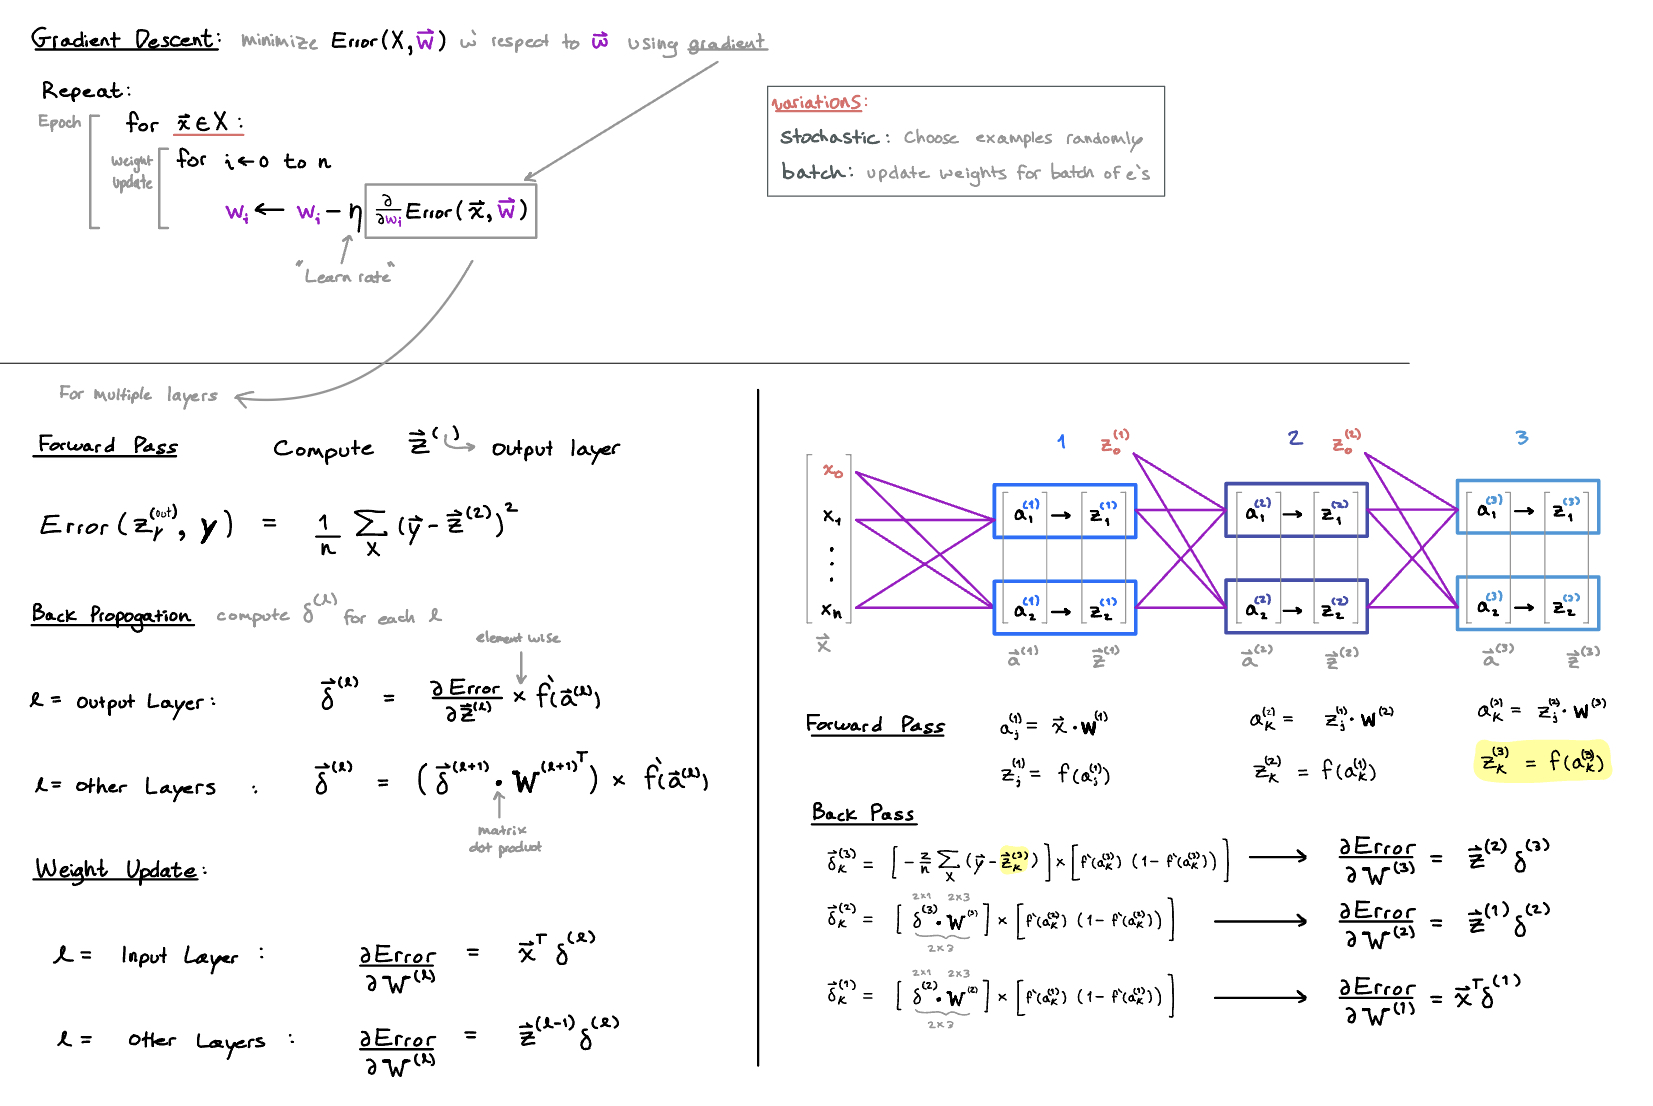 Gradient Descent: minimize Error(X, w⃗) w` respect to w⃗ using gradient
Repeat:
Epoch
for x⃗ ∈ X:
weight update
for i ← 0 to n
wᵢ ← wᵢ − η ∂/∂wᵢ Error(x⃗, w⃗)
"Learn rate"
variations:
Stochastic: Choose examples randomly
batch: update weights for batch of e's
For multiple layers
Forward Pass Compute z⃗^( ) → output layer
Error(z_r^(out), y) = 1/n Σ_X (y⃗ − z⃗^(2))²
Back Propogation compute δ^(l) for each l
element wise
l = output Layer: δ⃗^(l) = ∂Error/∂z⃗^(l) × f`(a⃗^(l))
l = other Layers : δ⃗^(l) = (δ⃗^(l+1) · W^(l+1)ᵀ) × f`(a⃗^(l))
matrix
dot product
Weight Update:
l = Input Layer : ∂Error/∂W^(l) = x⃗ᵀ δ^(l)
l = Other Layers : ∂Error/∂W^(l) = z⃗^(l-1) δ^(l)
1 z₀^(1) 2 z₀^(2) 3
x₀
x₁ a₁^(1) → z₁^(1) a₁^(2) → z₁^(2) a₁^(3) → z₁^(3)
⋮
xₙ a₂^(1) → z₂^(1) a₂^(2) → z₂^(2) a₂^(3) → z₂^(3)
x⃗ a⃗^(1) z⃗^(1) a⃗^(2) z⃗^(2) a⃗^(3) z⃗^(3)
Forward Pass a_j^(1) = x⃗ · W^(1) a_k^(2) = z_j^(1) · W^(2) a_k^(3) = z_j^(2) · W^(3)
z_j^(1) = f(a_j^(1)) z_k^(2) = f(a_k^(1)) z_k^(3) = f(a_k^(3))
Back Pass
δ⃗_k^(3) = [−2/n Σ_X (y⃗ − z⃗_k^(3))] × [f`(a_k^(3)) (1 − f`(a_k^(3)))] → ∂Error/∂W^(3) = z⃗^(2) δ^(3)
2x1 2x3
δ⃗_k^(2) = [δ^(3) · W^(3)] × [f`(a_k^(2)) (1 − f`(a_k^(2)))] → ∂Error/∂W^(2) = z⃗^(1) δ^(2)
2x3
2x1 2x3
δ⃗_k^(1) = [δ^(2) · W^(2)] × [f`(a_k^(1)) (1 − f`(a_k^(1)))] → ∂Error/∂W^(1) = x⃗ᵀ δ^(1)
2x3